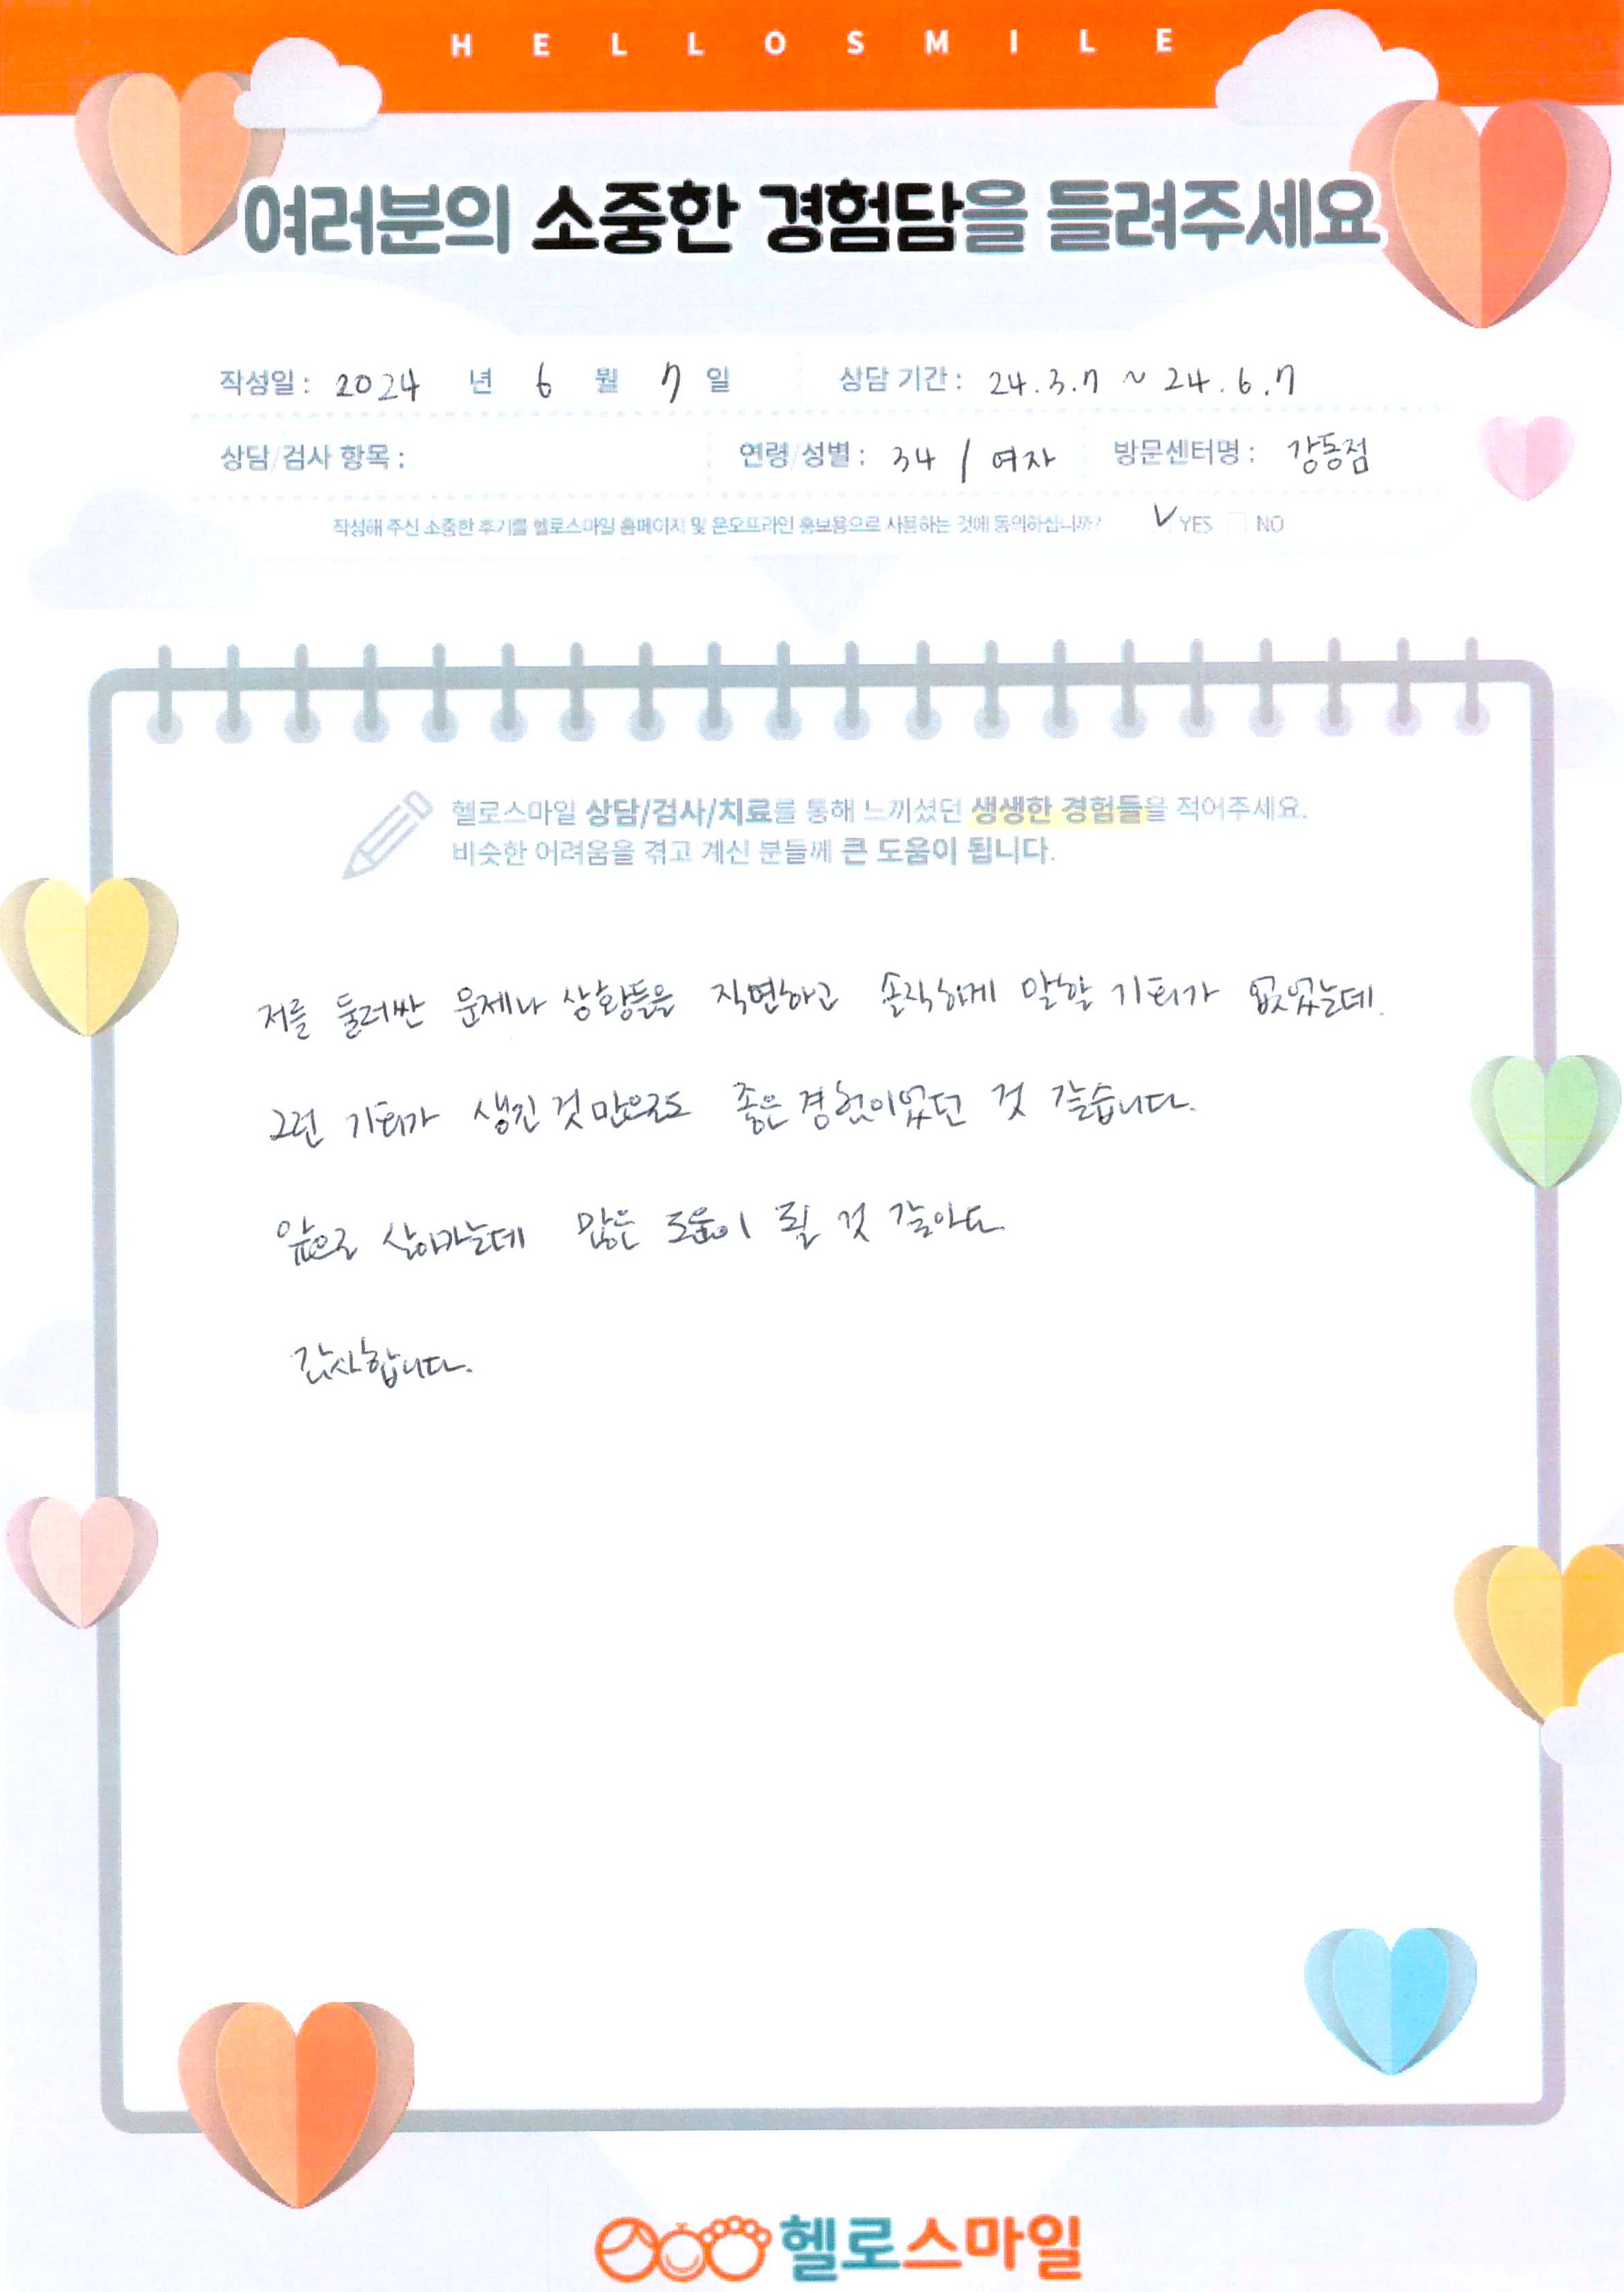 HELLOSMILE
여러분의 소중한 경험담을 들려주세요
작성일 : 2024 년 6 월 7 일 상담 기간 : 24.3.7 ~ 24.6.7
상담/검사 항목 : 연령/성별 : 34 / 여자 방문센터명 : 강동점
작성해 주신 소중한 후기를 헬로스마일 홈페이지 및 온오프라인 홍보용으로 사용하는 것에 동의하십니까? ✓ YES □ NO
헬로스마일 상담/검사/치료를 통해 느끼셨던 생생한 경험들을 적어주세요.
비슷한 어려움을 겪고 계신 분들께 큰 도움이 됩니다.
저를 둘러싼 문제나 상황들을 직면하고 솔직하게 말할 기회가 없었는데.
그런 기회가 생긴 것 만으로도 좋은 경험이었던 것 같습니다.
앞으로 살아가는데 많은 도움이 될 것 같아요.
감사합니다.
헬로스마일